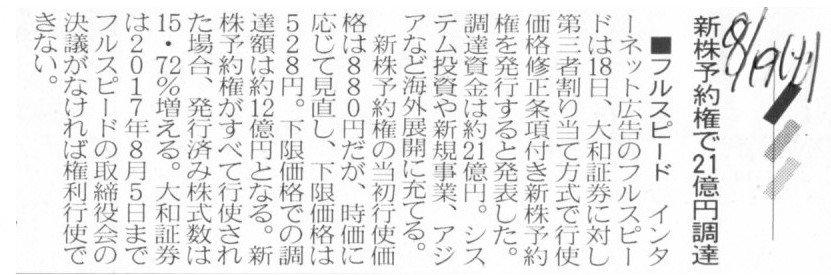 8/19
新株予約権で21億円調達
■フルスピード　インタ
ーネット広告のフルスピー
ドは18日、大和証券に対し
第三者割り当て方式で行使
価格修正条項付き新株予約
権を発行すると発表した。
調達資金は約21億円。シス
テム投資や新規事業、アジ
アなど海外展開に充てる。
　新株予約権の当初行使価
格は880円だが、時価に
応じて見直し、下限価格は
528円。下限価格での調
達額は約12億円となる。新
株予約権がすべて行使され
た場合、発行済み株式数は
15・72%増える。大和証券
は2017年8月5日まで
フルスピードの取締役会の
決議がなければ権利行使で
きない。